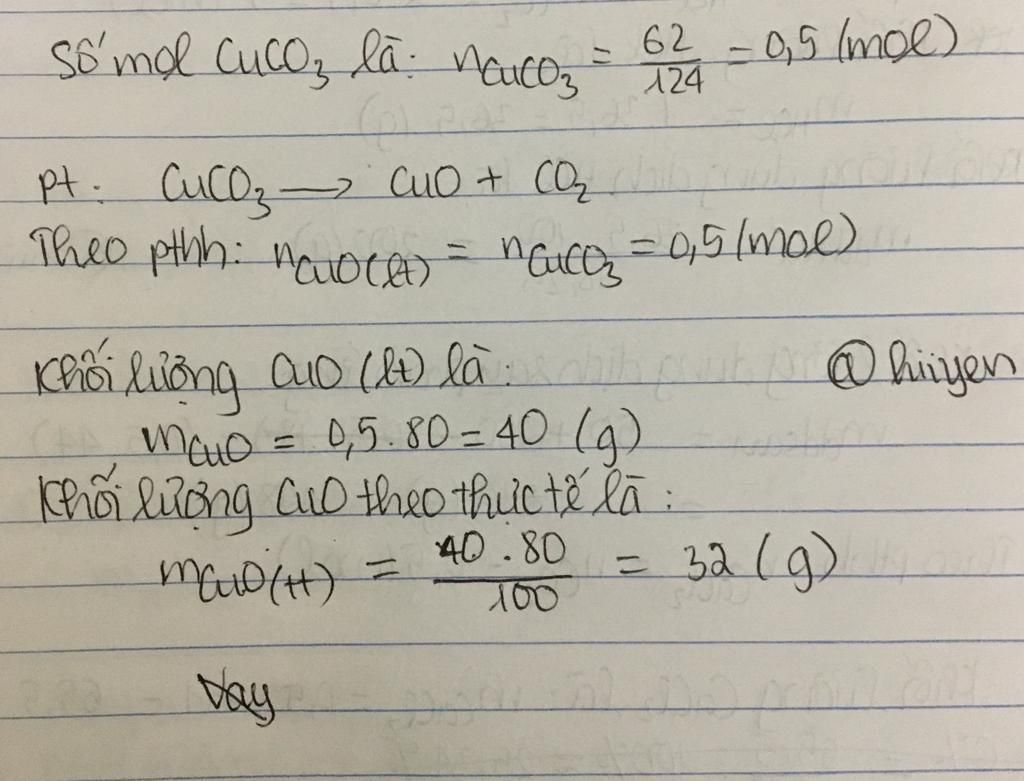 Số mol CuCO3 là: nCuCO3 = 62/124 = 0,5 (mol)
pt: CuCO3 → CuO + CO2
Theo pthh: nCuO(lt) = nCuCO3 = 0,5 (mol)
Khối lượng CuO (lt) là:
@hiiyen
mCuO = 0,5.80 = 40 (g)
Khối lượng CuO theo thực tế là:
mCuO(tt) = 40.80/100 = 32 (g)
Vay